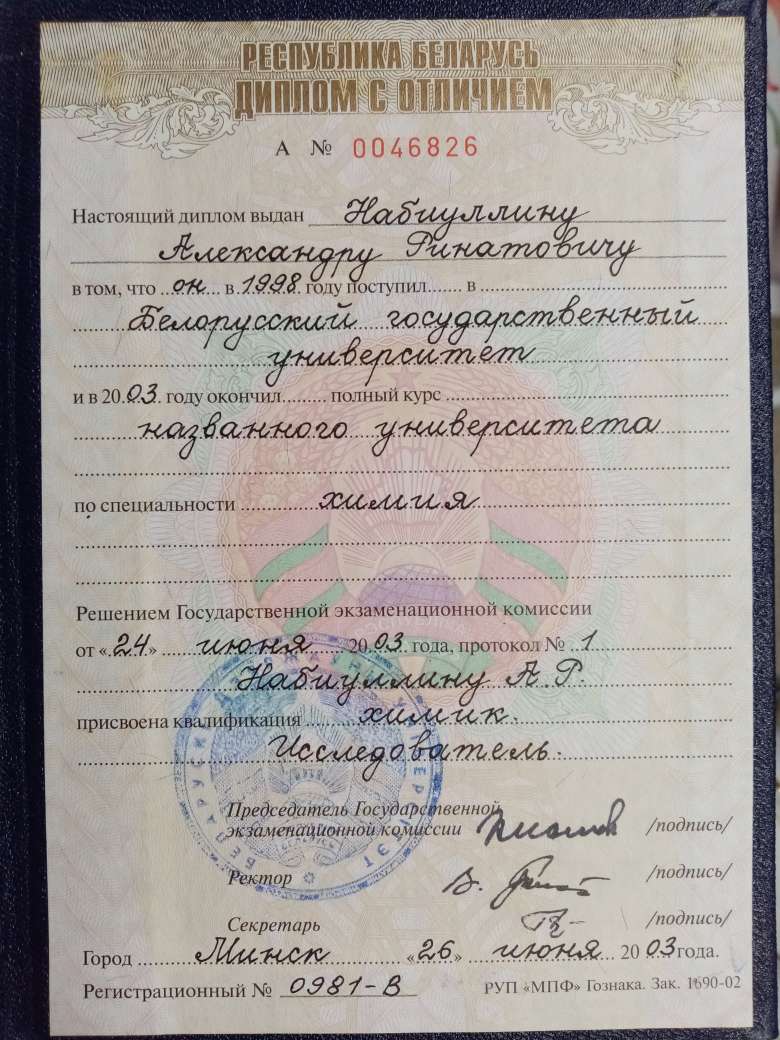 РЕСПУБЛИКА БЕЛАРУСЬ
ДИПЛОМ С ОТЛИЧИЕМ
А № 0046826
Настоящий диплом выдан Набиуллину
Александру Ринатовичу
в том, что он в 1998 году поступил в
Белорусский государственный
университет
и в 2003 году окончил полный курс
названного университета
по специальности химия
Решением Государственной экзаменационной комиссии
от «24» июня 2003 года, протокол № 1
Набиуллину А.Р.
присвоена квалификация химик.
Исследователь.
Председатель Государственной
экзаменационной комиссии /подпись/
Ректор /подпись/
Секретарь /подпись/
Город Минск «26» июня 2003 года.
Регистрационный № 0981-В РУП «МПФ» Гознака. Зак. 1690-02